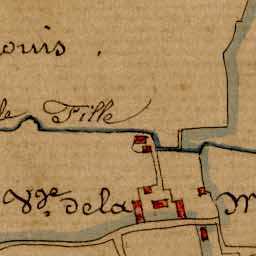 ouis.
de Fille
Vge de la M